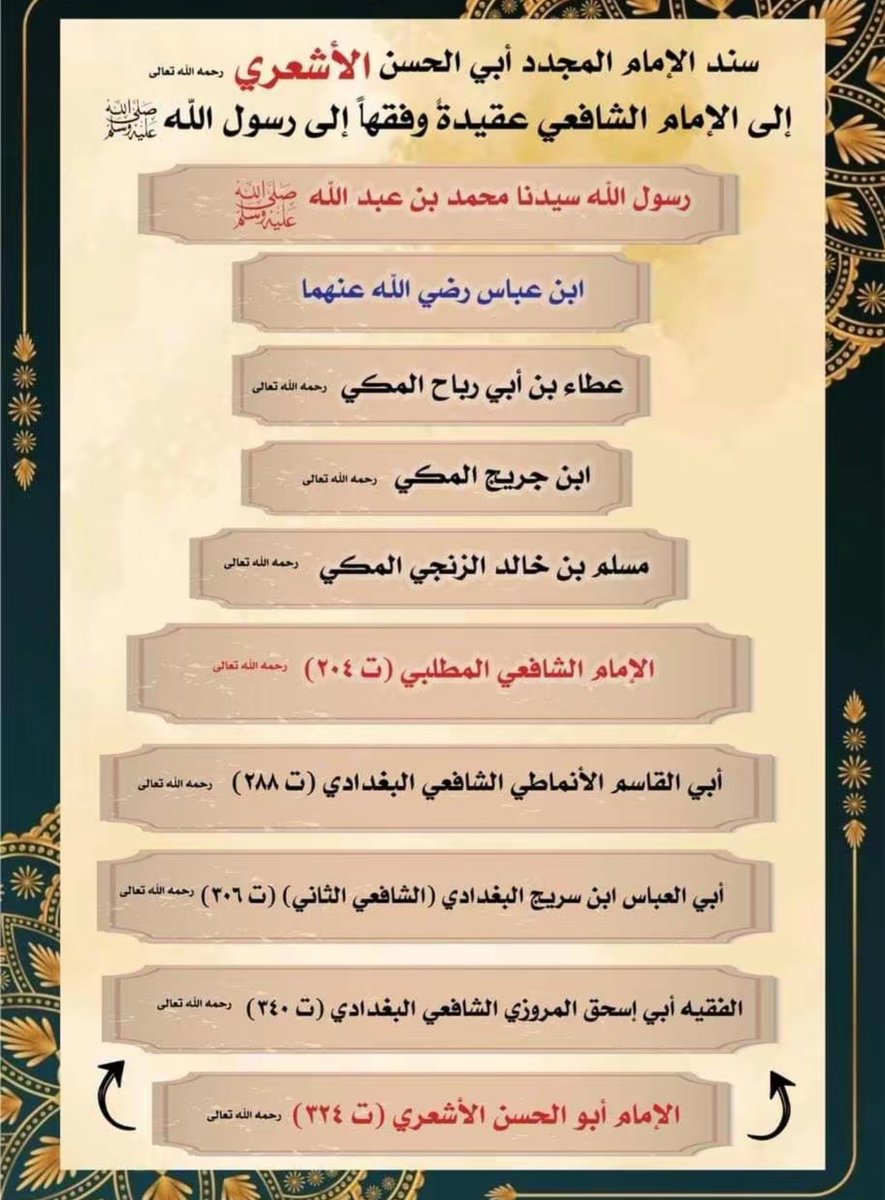 سند الإمام المجدد أبي الحسن الأشعري رحمه الله تعالى
إلى الإمام الشافعي عقيدةً وفقهاً إلى رسول الله ﷺ
رسول الله سيدنا محمد بن عبد الله ﷺ
ابن عباس رضي الله عنهما
عطاء بن أبي رباح المكي رحمه الله تعالى
ابن جريج المكي رحمه الله تعالى
مسلم بن خالد الزنجي المكي رحمه الله تعالى
الإمام الشافعي المطلبي (ت ٢٠٤) رحمه الله تعالى
أبي القاسم الأنماطي الشافعي البغدادي (ت ٢٨٨) رحمه الله تعالى
أبي العباس ابن سريج البغدادي (الشافعي الثاني) (ت ٣٠٦) رحمه الله تعالى
الفقيه أبي إسحق المروزي الشافعي البغدادي (ت ٣٤٠) رحمه الله تعالى
الإمام أبو الحسن الأشعري (ت ٣٢٤) رحمه الله تعالى